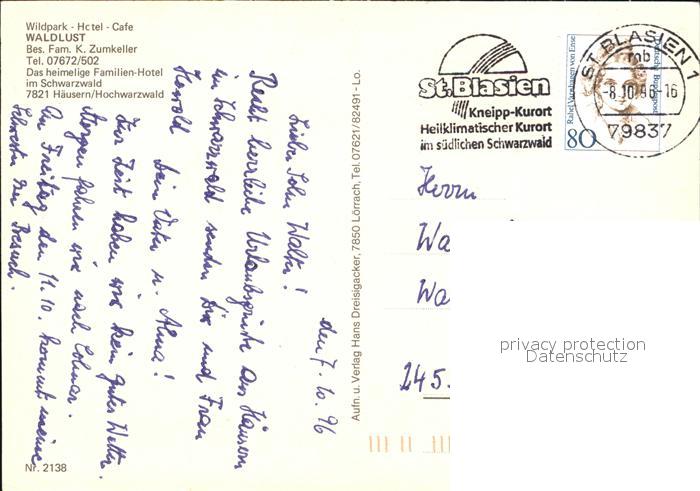 Wildpark - Hotel - Cafe
WALDLUST
Bes. Fam. K. Zumkeller
Tel. 07672/502
Das heimelige Familien-Hotel
im Schwarzwald
7821 Häusern/Hochwarzwald
den 7. 10. 96
Lieber Sohn Walter!
Recht herrliche Urlaubsgrüße aus Häusern
im Schwarzwald senden Dir und Frau
Dein Vater u. Alma!
Zur Zeit haben wir kein gutes Wetter.
Morgen fahren wir nach Colmar.
Am Freitag den 11.10. kommt meine
Schwester zu Besuch.
Nr. 2138
Aufn. u. Verlag Hans Dreisigacker, 7850 Lörrach, Tel. 07621/82491 - Lo.
St.Blasien
Kneipp-Kurort
Heilklimatischer Kurort
im südlichen Schwarzwald
Rahel Varnhagen von Ense
Deutsche Bundespost
80
ST. BLASIEN 1
mb
-8.10.96-16
79837
Herrn
Wa
Wa
245.
privacy protection
Datenschutz